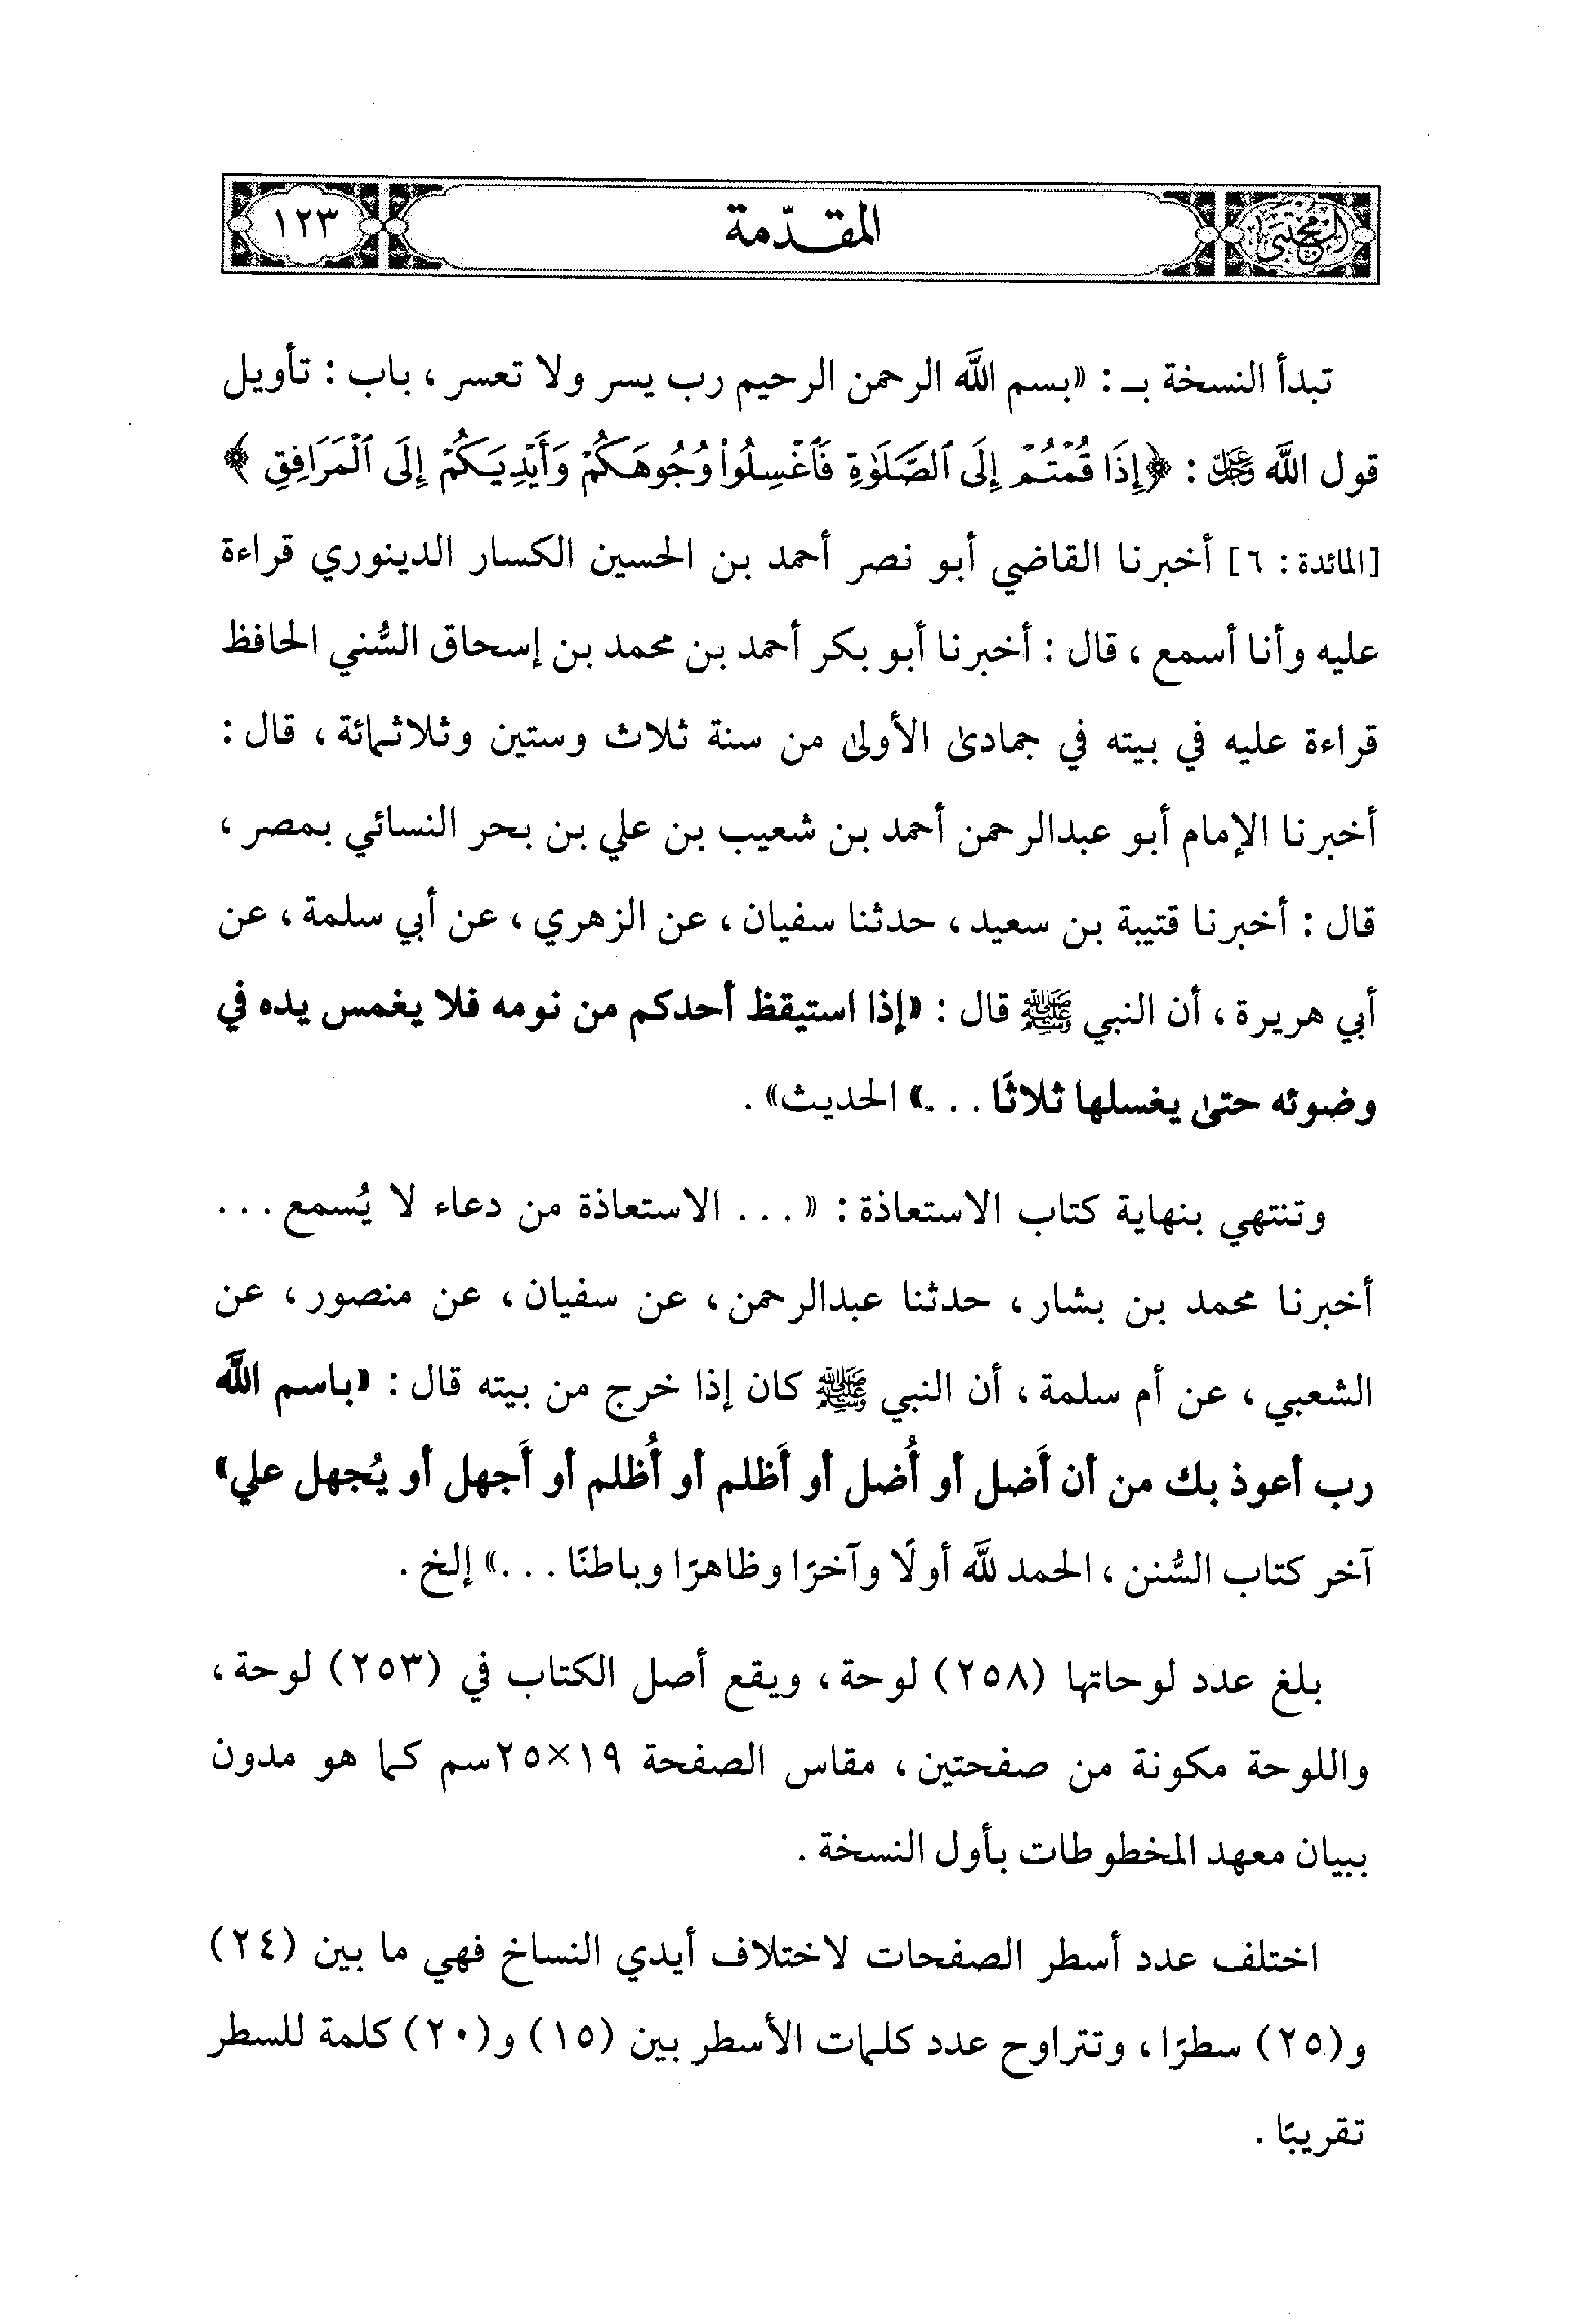 المجتبى
المقدّمة
١٢٣
تبدأ النسخة بـ : «بسم اللَّه الرحمن الرحيم رب يسر ولا تعسر ، باب : تأويل
قول اللَّه عز وجل : ﴿إِذَا قُمْتُمْ إِلَى ٱلصَّلَوٰةِ فَٱغْسِلُوا۟ وُجُوهَكُمْ وَأَيْدِيَكُمْ إِلَى ٱلْمَرَافِقِ ﴾
[المائدة : ٦] أخبرنا القاضي أبو نصر أحمد بن الحسين الكسار الدينوري قراءة
عليه وأنا أسمع ، قال : أخبرنا أبو بكر أحمد بن محمد بن إسحاق السُّني الحافظ
قراءة عليه في بيته في جمادىٰ الأولىٰ من سنة ثلاث وستين وثلاثمائة ، قال :
أخبرنا الإمام أبو عبدالرحمن أحمد بن شعيب بن علي بن بحر النسائي بمصر ،
قال : أخبرنا قتيبة بن سعيد ، حدثنا سفيان ، عن الزهري ، عن أبي سلمة ، عن
أبي هريرة ، أن النبي ﷺ قال : «إذا استيقظ أحدكم من نومه فلا يغمس يده في
وضوئه حتىٰ يغسلها ثلاثًا . . .» الحديث» .
وتنتهي بنهاية كتاب الاستعاذة : « . . . الاستعاذة من دعاء لا يُسمع . . .
أخبرنا محمد بن بشار ، حدثنا عبدالرحمن ، عن سفيان ، عن منصور ، عن
الشعبي ، عن أم سلمة ، أن النبي ﷺ كان إذا خرج من بيته قال : «باسم اللَّه
رب أعوذ بك من أن أَضل أو أُضل أو أَظلم أو أُظلم أو أَجهل أو يُجهل علي»
آخر كتاب السُّنن ، الحمد للَّه أولًا وآخرًا وظاهرًا وباطنًا . . .» إلخ .
بلغ عدد لوحاتها (٢٥٨) لوحة ، ويقع أصل الكتاب في (٢٥٣) لوحة ،
واللوحة مكونة من صفحتين ، مقاس الصفحة ١٩×٢٥سم كما هو مدون
ببيان معهد المخطوطات بأول النسخة .
اختلف عدد أسطر الصفحات لاختلاف أيدي النساخ فهي ما بين (٢٤)
و(٢٥) سطرًا ، وتتراوح عدد كلمات الأسطر بين (١٥) و(٢٠) كلمة للسطر
تقريبًا .